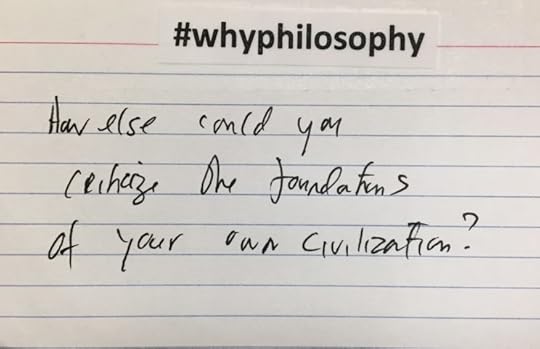 #whyphilosophy
How else could you
criticize the foundations
of your own civilization?